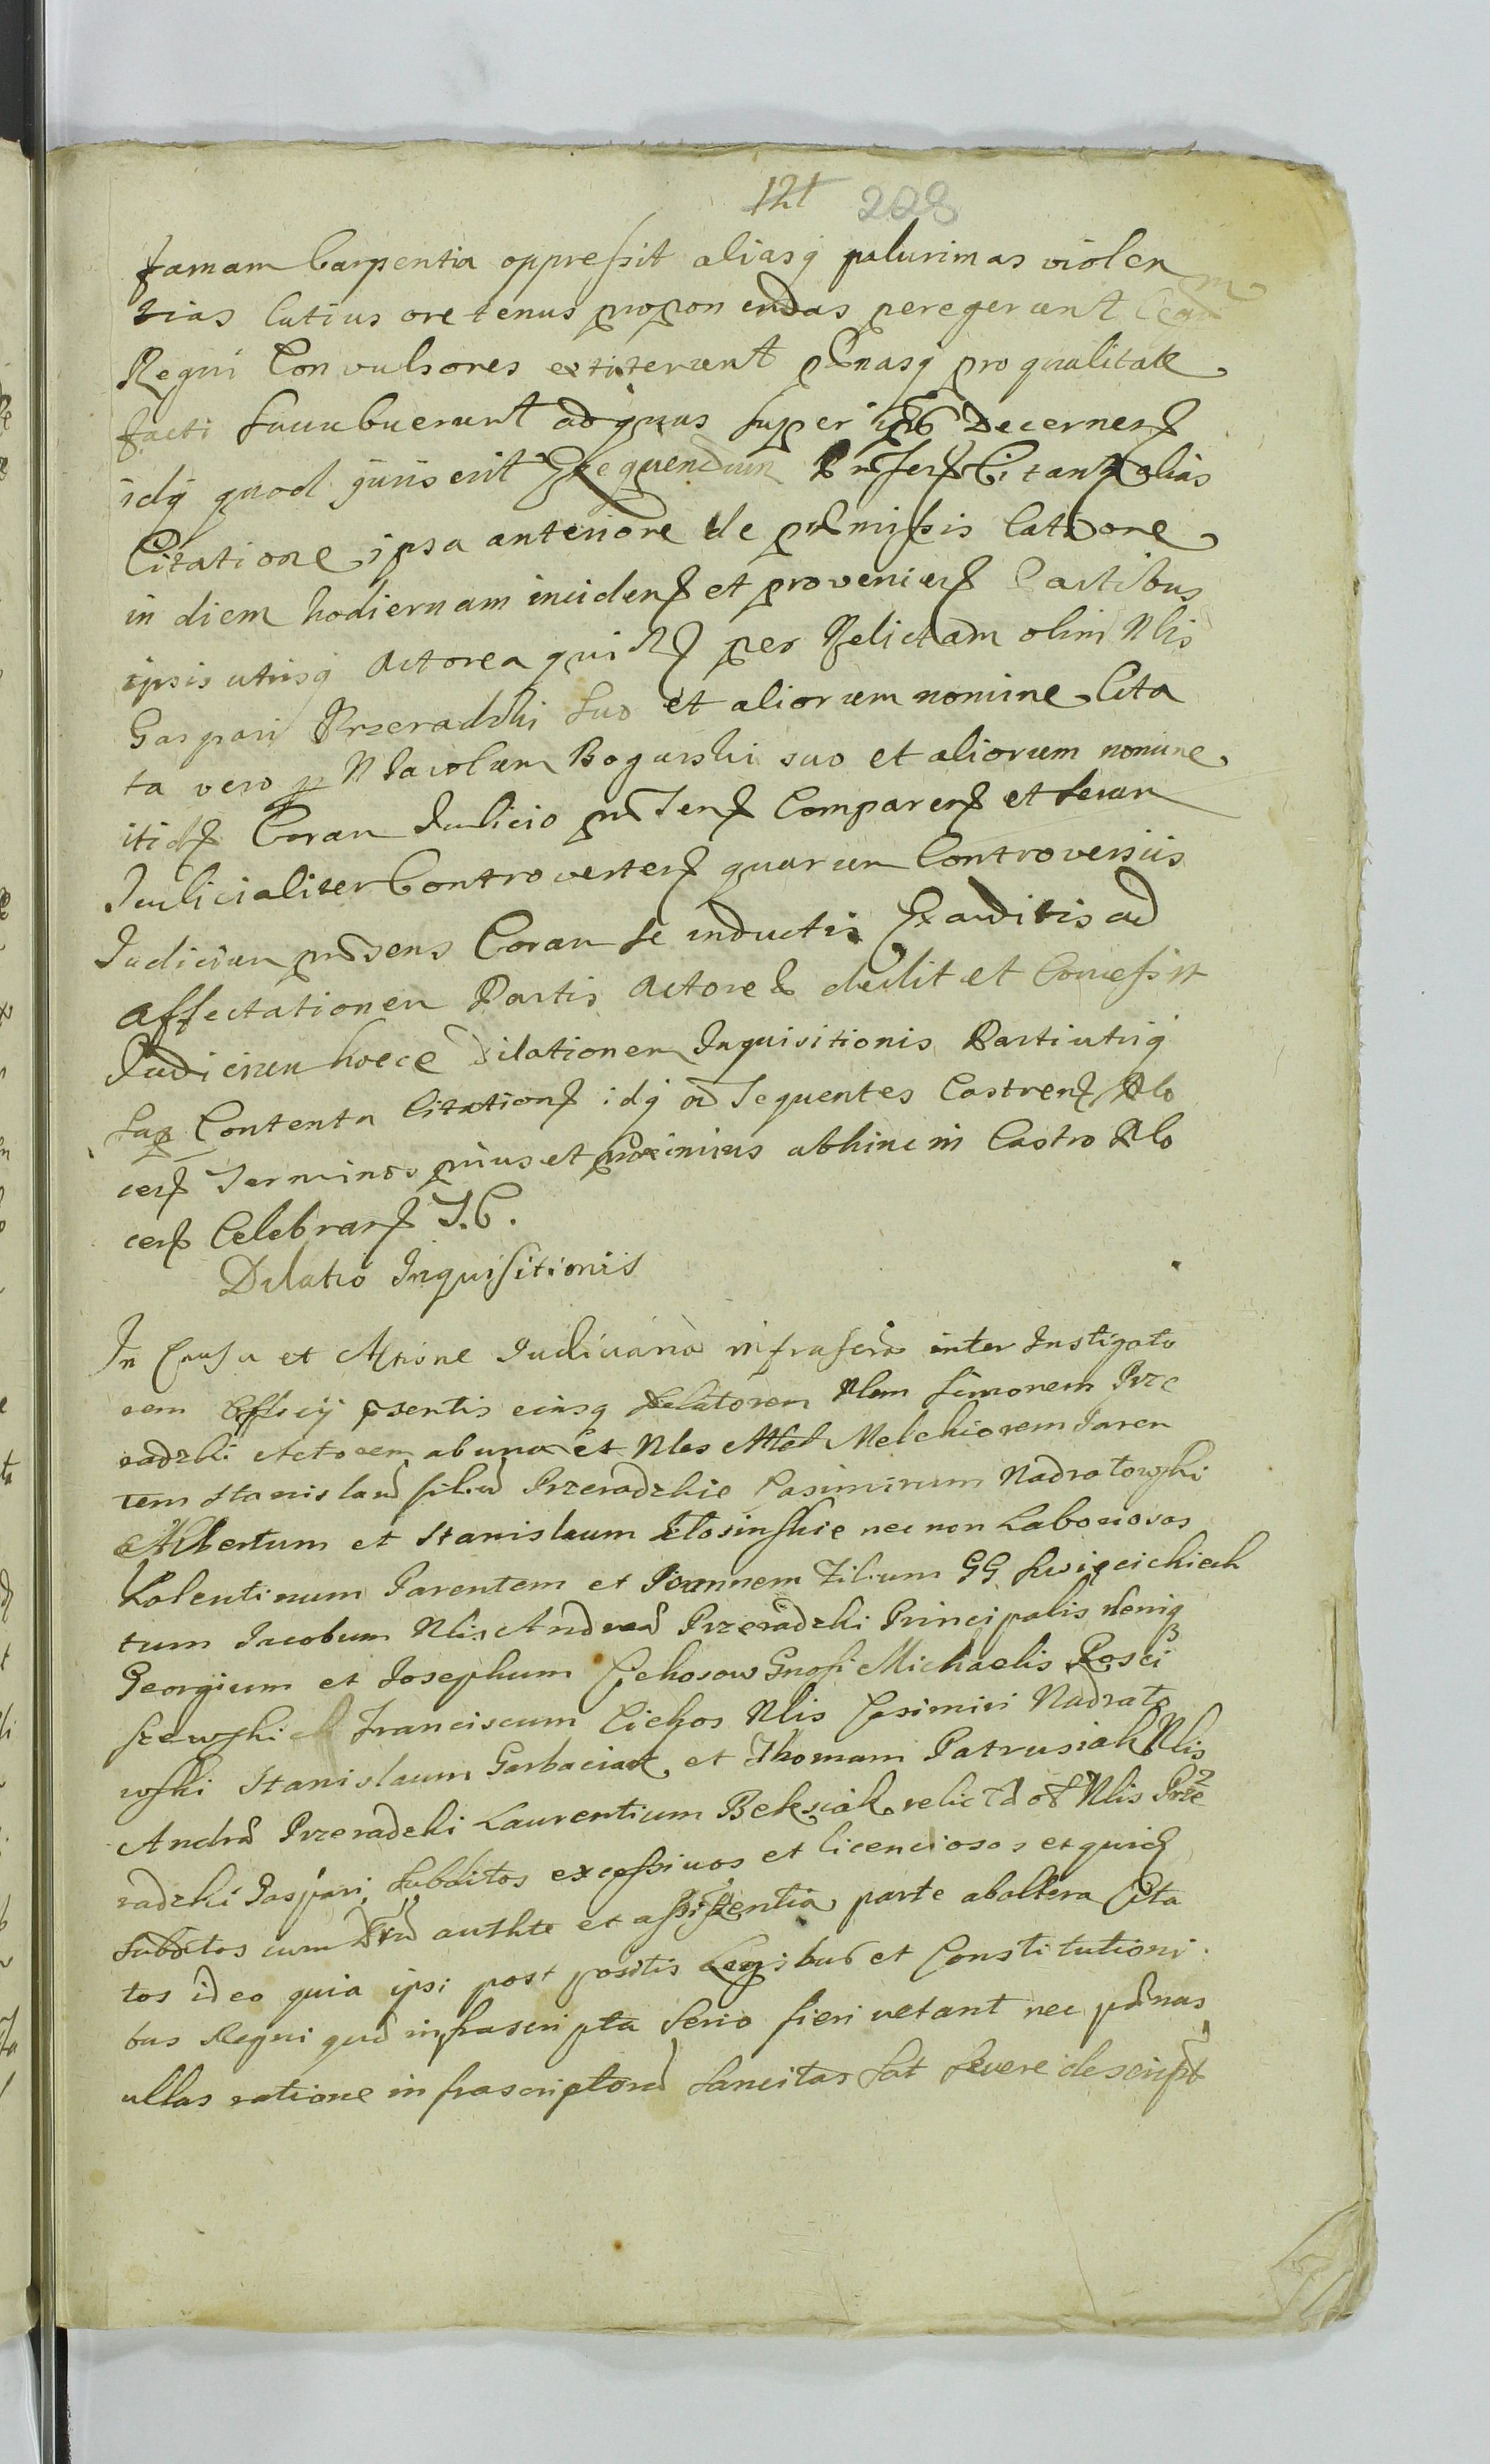 121 208
famam Carpentia oppressit aliasq plurimas violen
tias latius oretenus proponendas peregerunt Legum
Regni Convulsores extiterunt pœnasq pro qualitate
facti succubuerunt ad quas super ipsis Decernen
idq quod juris erit Exequendum Citant alias
Citatione ipsa anteriore de præmissis latiore
in diem hodiernam inciden et provenien Partibus
ipsis utrisq Actorea quid per Relictam olim Nlis
Gaspari Przeradzki suo et aliorum nomine Cita
ta vero p N Jacobum Bogurski suo et aliorum nomine
itid Coram Judicio præsen Comparen et secum
Judicialiter Controverten quarum Controversiis
Judicium præsens Coram se inductis Exauditis ad
affectationem Partis Actoreæ dedit et Concessit
Judicium hocce Dilationem Inquisitionis Parti utriq
sup Contenta Citation idq ad sequentes Castren Plo
cen Terminos prius et proximius abhinc in Castro Plo
cen Celebran T.C.
Dilatio Inquisitionis
In Causa et Actione Judiciaria infrascra inter Instigato
rem Officij psentis eiusq delatorem Nlem Simonem Prze
radzki Actorem ab una et Nles Melchiorem Paren
tem Stanislau filiu Przeradzkie Casimirum Nadratowski
Albertum et Stanislaum Klosinskie nec non Laboriosos
Valentinum Parentem et Joannem Filium GG Swięcickich
tum Jacobum Nlis Andreæ Przeradzki Principalis deniq
Georgium et Josephum Cichosow Gnosi Michaelis Rosci
szewski Franciscum Cichos Nlis Casimiri Nadrato
wski Stanislaum Garbaciak et Thomam Patrusiak Nlis
Andreæ Przeradzki Laurentium Beksiak relictæ ol Nlis Prze
radzki Gaspari Subditos excessivos et licenciosos et quid
Subditos cum authte et assistentia parte ab altera Cita
tos ideo quia ipsi post positis Legibus et Constitutioni
bus Regni quæ infrascripta serio fieri vetant nec pœnas
ullas ratione infrascriptoru sancitas sat severe descript